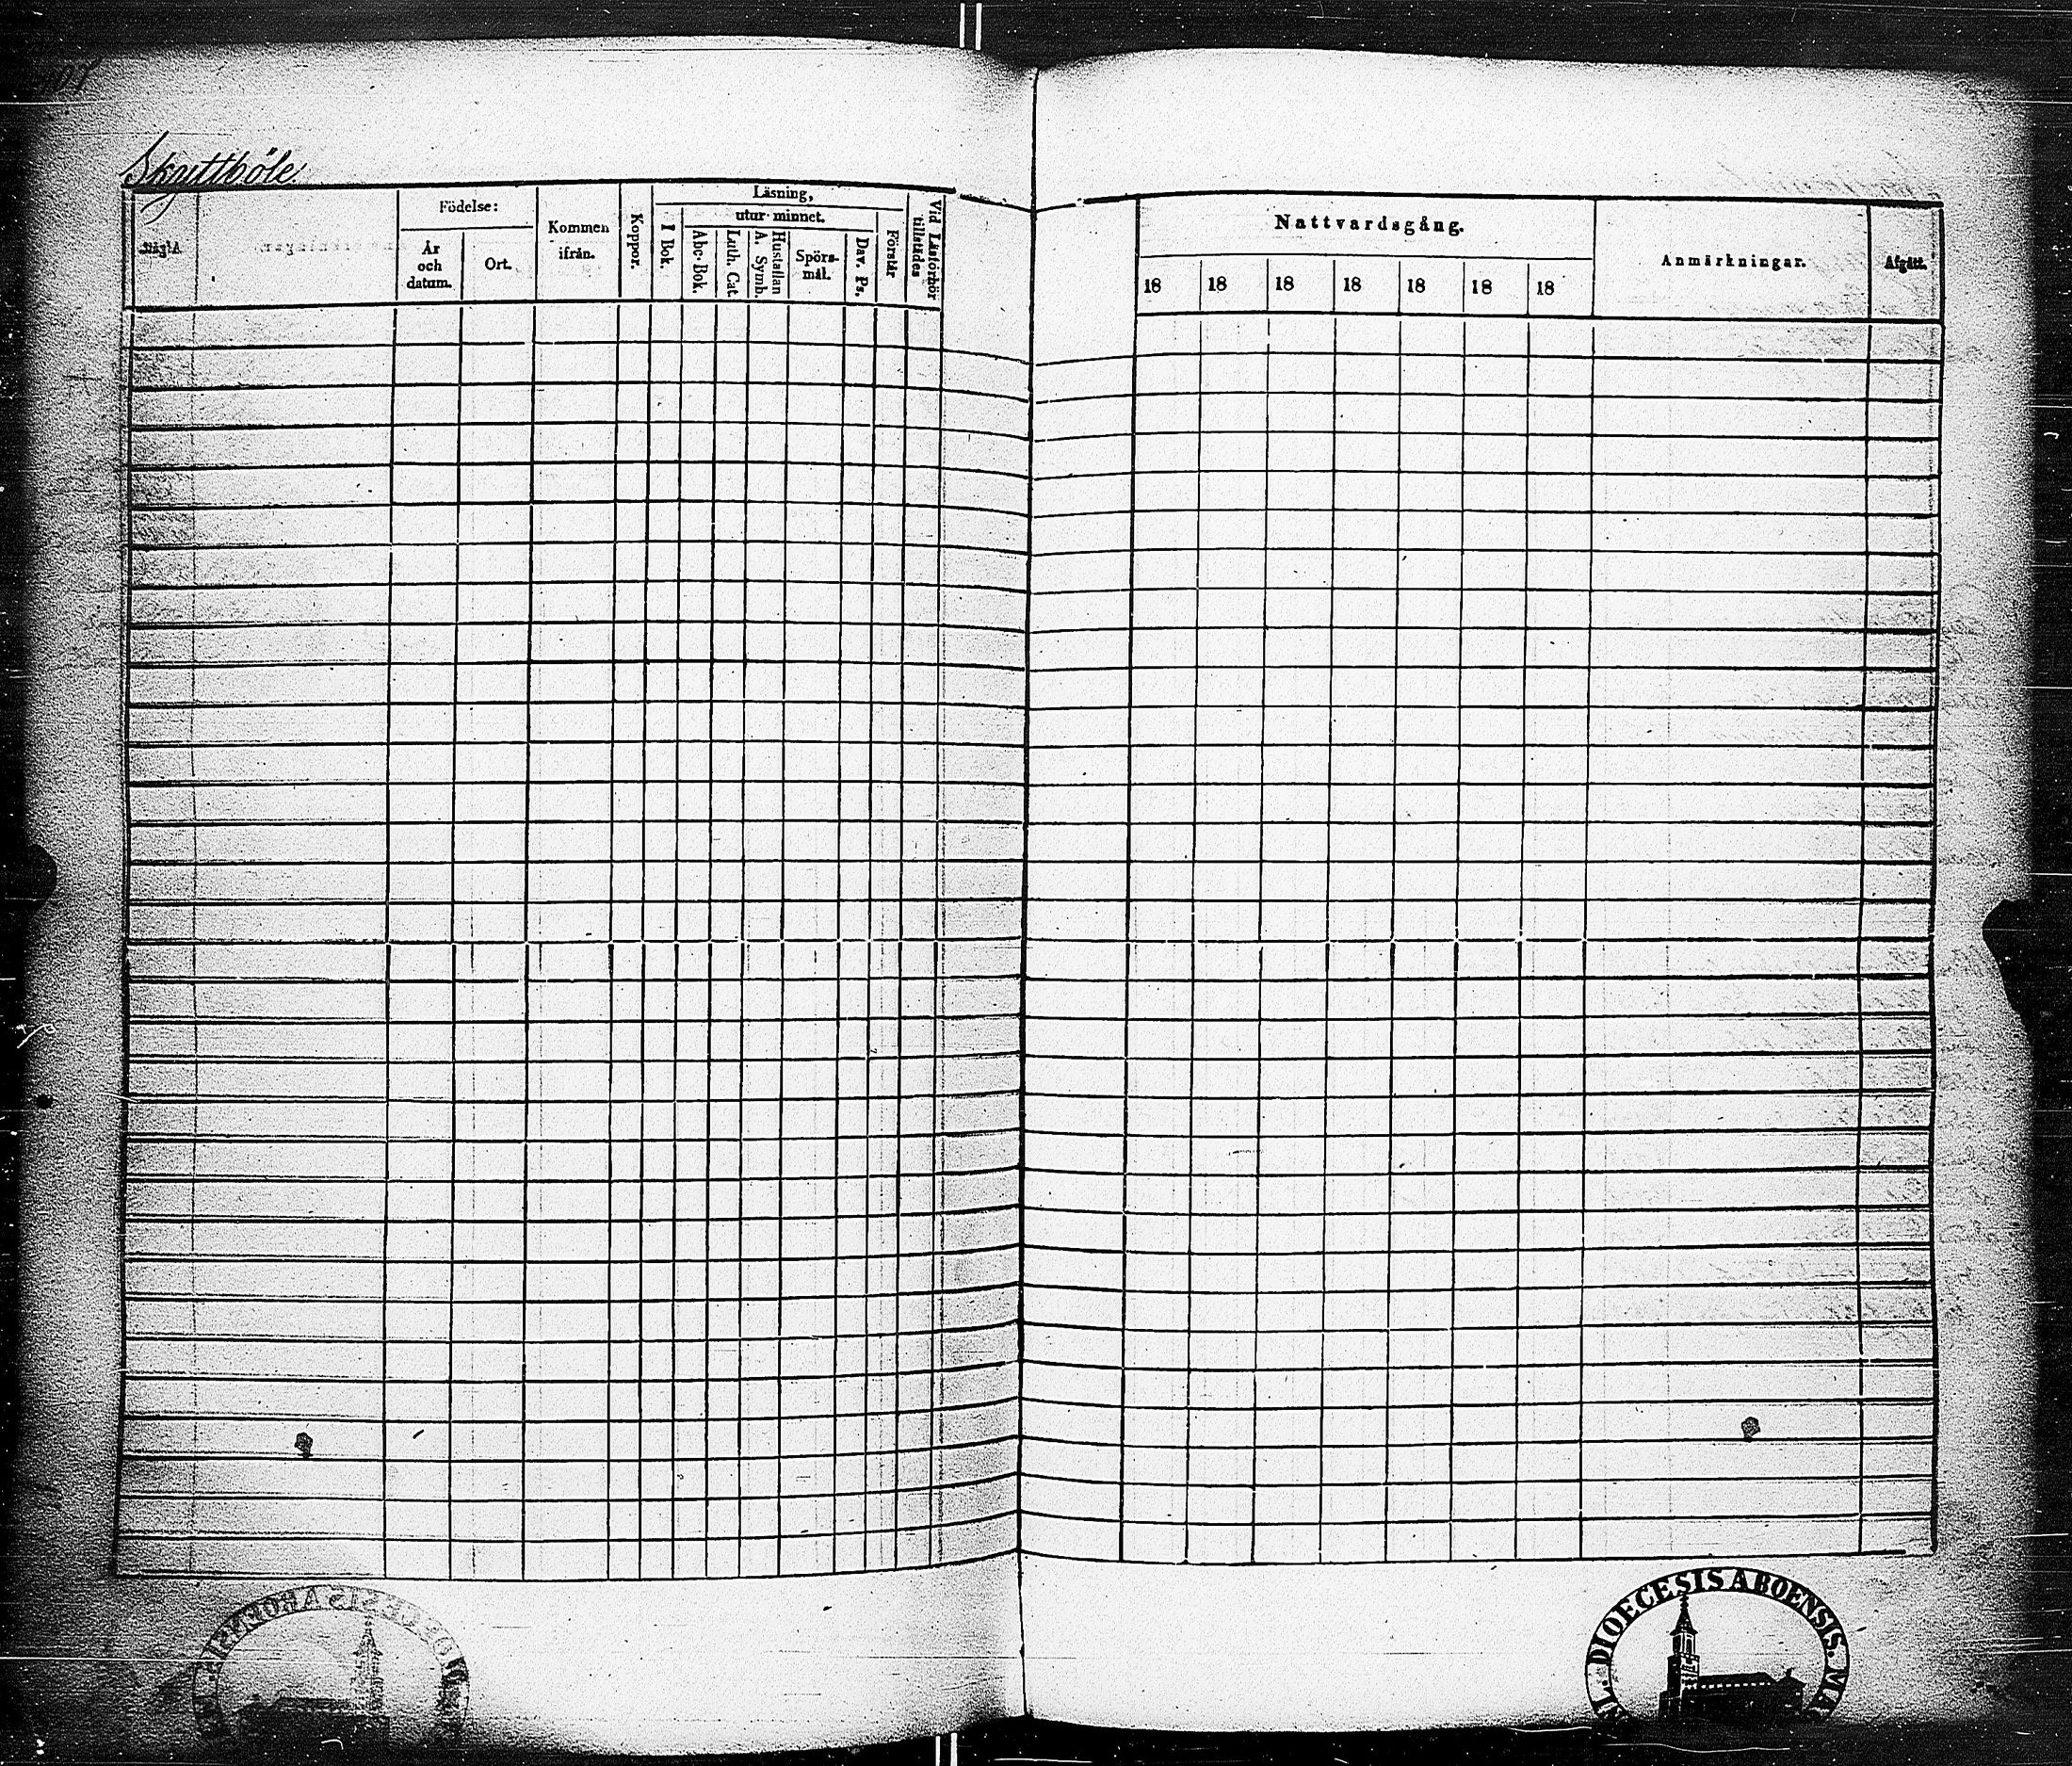 Skyttböle
Födelse:
År
och
datum.
Ort.
Kommen
ifrån.
Koppor.
Läsning,
utur minnet.
I Bok.
Abc-Bok.
Luth. Cat.
Hustaflan
A. Symb.
Spörs-
mål.
Dav. Ps.
Förstår
Vid Läsförhör
tillstädes
Nattvardsgång.
18 18 18 18 18 18 18
Anmärkningar.
Afgått.
DIOECESIS ABOENSIS. MA